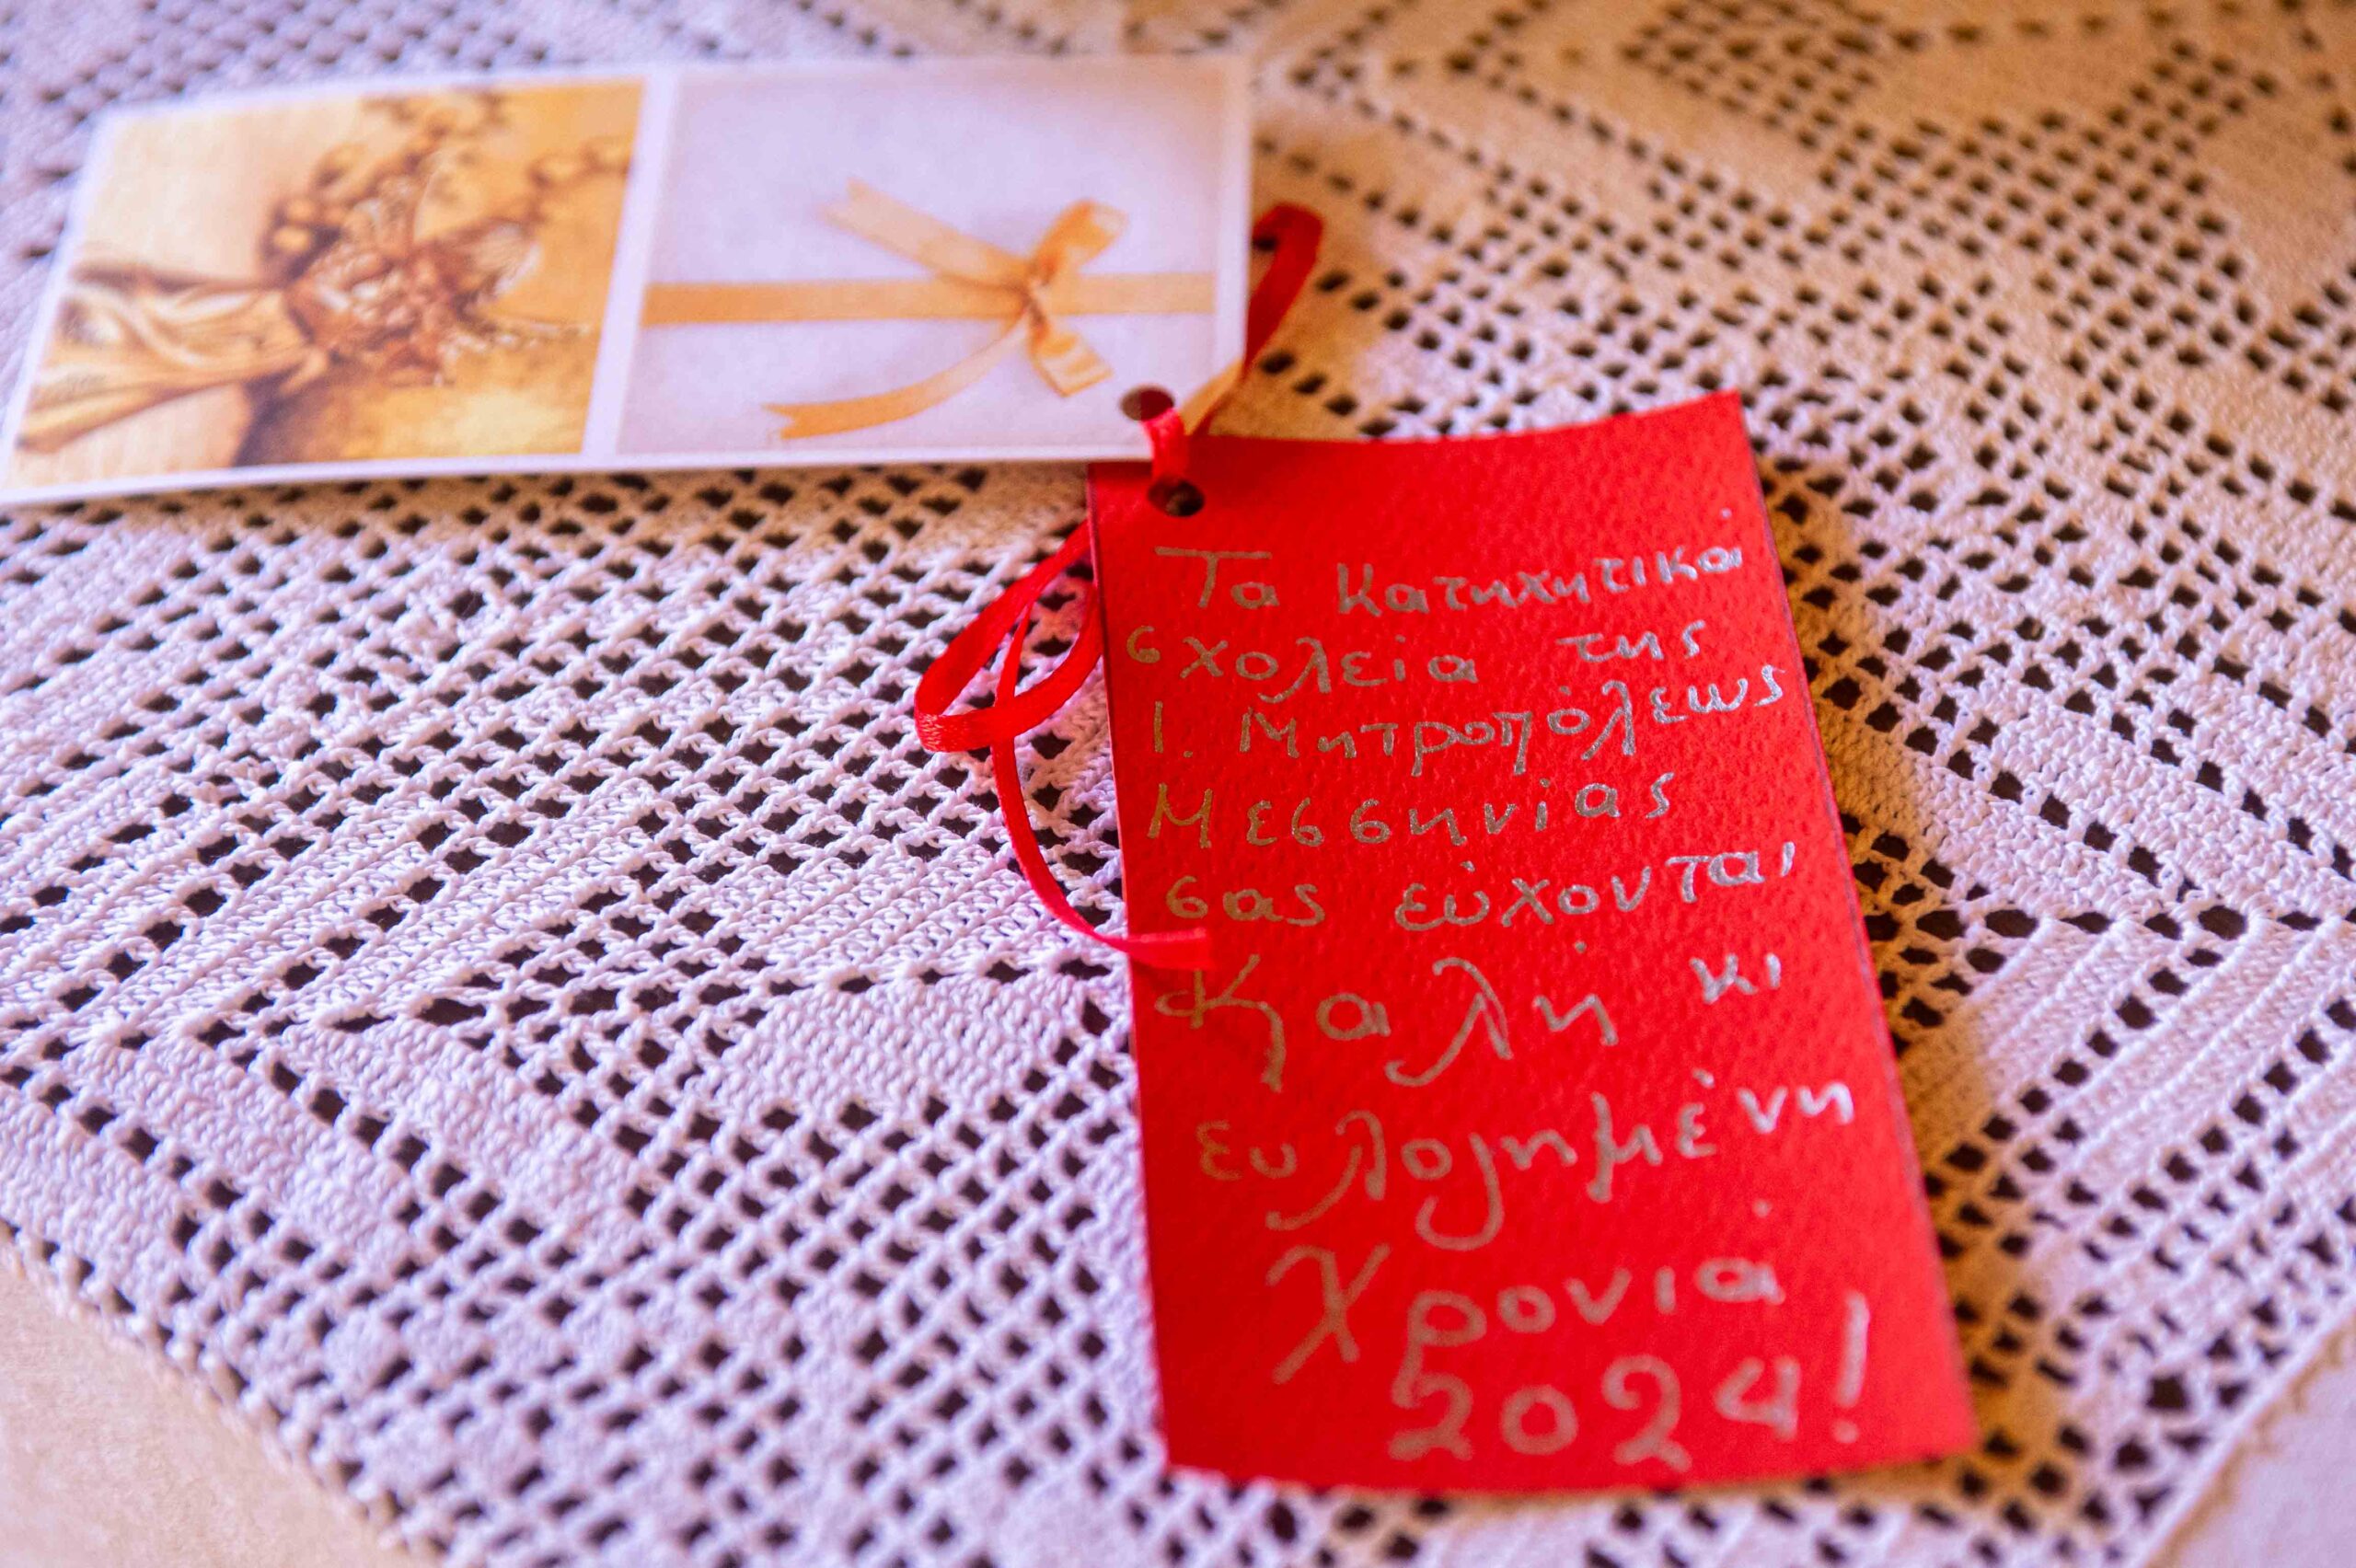 Τα Κατηχητικά
σχολεία της
Ι. Μητροπόλεως
Μεσσηνίας
σας εύχονται
Καλή κι
ευλογημένη
Χρονιά
2024!